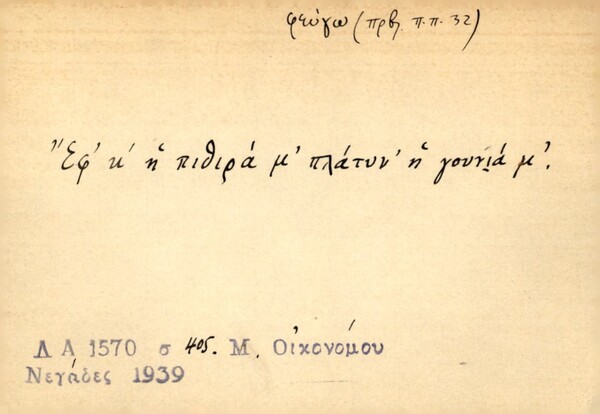 φεύγω (πρβ. π.π. 32)
Ἔφ' κ' ἡ πιθιρά μ' πλάτυν' ἡ γουνιά μ'.
Λ Α 1570 σ 405. Μ. Οἰκονόμου
Νεγάδες 1939